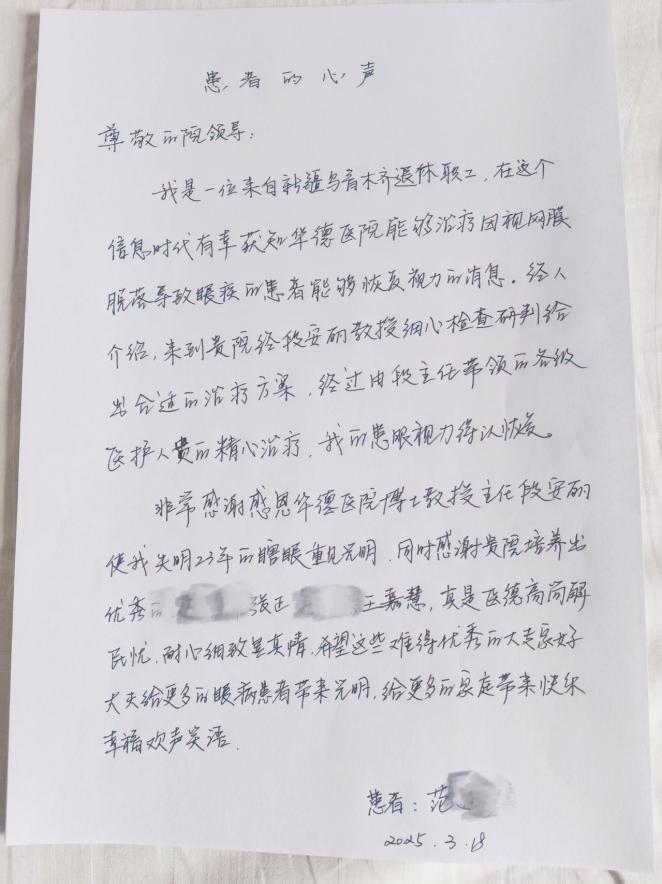 患者的心声
尊敬的院领导:
我是一位来自新疆乌鲁木齐退休职工,在这个
信息时代有幸获知华德医院能够治疗因视网膜
脱落导致眼疾的患者能够恢复视力的消息。经人
介绍,来到贵院经段安丽教授细心检查研判给
出合适的治疗方案,经过由段主任带领的各级
医护人员的精心治疗,我的患眼视力得以恢复。
非常感谢感恩华德医院博士教授主任段安丽
使我失明23年的瞎眼重见光明,同时感谢贵院培养出
优秀的 张正 王嘉慧,真是医德高尚解
民忧,耐心细致显真情,希望这些难得优秀的大专家好
大夫给更多的眼病患者带来光明,给更多的家庭带来快乐
幸福欢声笑语.
患者:范
2025.3.18